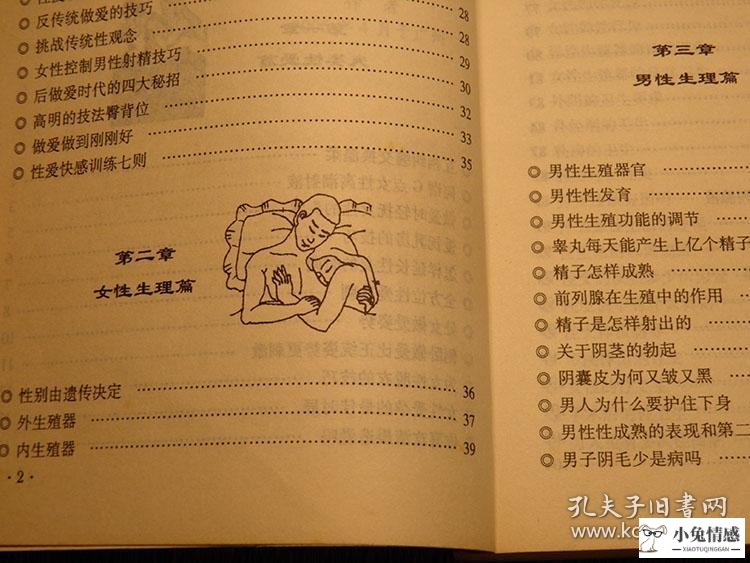 ◎ 反传统做爱的技巧 28
◎ 挑战传统性观念 28
◎ 女性控制男性射精技巧 29
◎ 后做爱时代的四大秘招 30
◎ 高明的技法臀背位 32
◎ 做爱做到刚刚好 33
◎ 性爱快感训练七则 35
第二章
女性生理篇
◎ 性别由遗传决定 36
◎ 外生殖器 37
◎ 内生殖器 39
·2·
第三章
男性生理篇
◎ 男性生殖器官
◎ 男性性发育
◎ 男性生殖功能的调节
◎ 睾丸每天能产生上亿个精子
◎ 精子怎样成熟
◎ 前列腺在生殖中的作用
◎ 精子是怎样射出的
◎ 关于阴茎的勃起
◎ 阴囊皮为何又皱又黑
◎ 男人为什么要护住下身
◎ 男性性成熟的表现和第二
◎ 男子阴毛少是病吗
孔夫子旧书网
小兔情感
XIAOTUQINGGAN